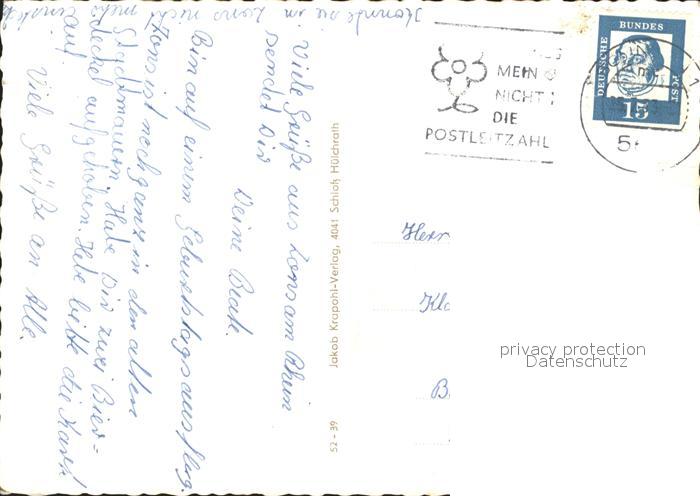 Viele Grüße aus Zons am Rhein
sendet Dir
Deine Beate.
Bin auf einem Geburtstagsausflug.
Zons ist noch ganz in den alten
Stadtmauern. Habe Dir zwei Bier-
deckel aufgehoben. Hebe bitte die Karte
auf.
Viele Grüße an Alle.
Konnte sie in Zons nicht
Jakob Krapohl-Verlag, 4041 Schloß Hülchrath
52 - 39
MEIN
NICHT
DIE
POSTLEITZAHL
DEUTSCHE
BUNDES
POST
15
Herr
Klo
B
privacy protection
Datenschutz